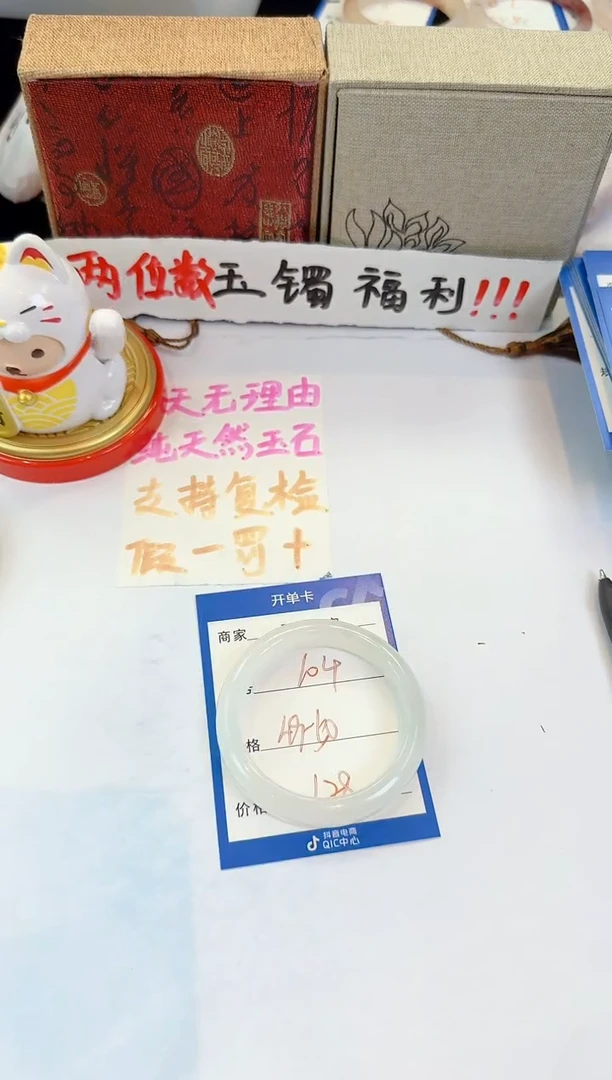 两位数玉镯福利!!!
天无理由
纯天然玉石
支持复检
假一罚十
开单卡
商家
104
格
128
价格
抖音电商
QIC中心